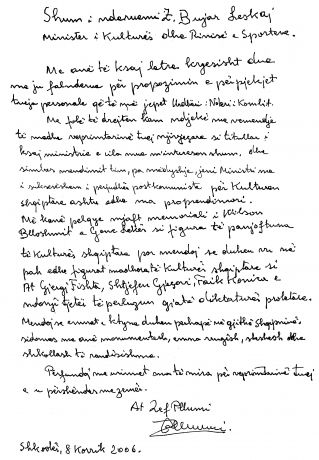 Shum i nderuemi Z. Bujar Leskaj
Minister i Kulturës dhe Rinisë e Sporteve.
Me anë të ksaj letre kryesisht due
me ju falnderue për propozimin e përpjekjet
tueja personale që të më jepet Urdhni: Nderi i Kombit.
Me folë të drejtën kam ndjekë me vemendje
të madhe veprimtarinë tuej njizyrazoe si titullar i
ksaj ministrie e cila më intereson shum, dhe
simbas mendimit tim, pa mëdyshje, jeni Ministri ma
i suksesshem i periudhës postkomuniste për Kulturën
shqiptare ashtu edhe ma propendimori.
Më kanë pelqye mjaft memoriali i Wilson
Blloshmit e Genc Lekës si figura të panjoftuna
të Kulturës shqiptare por mendoj se duhen vu në
pah edhe figurat madhore të Kulturës shqiptare si
At Gjergj Fishta, Shtjefen Gjeçovi, Faik Konica e
ndonji tjetër të perbuzun gjatë diktaturës proletare.
Mendoj se emnat e ktyne duhen perhapë në gjithë Shqipninë,
sidomos me anë monumentesh, emna rrugësh, sheshesh dhe
shkollash të randësishme.
Perfundoj me urimet ma të mira për veprimtarinë tuej
e u përshëndes me zemër.
At Zef Pllumi
Shkodër, 8 Korrik 2006.